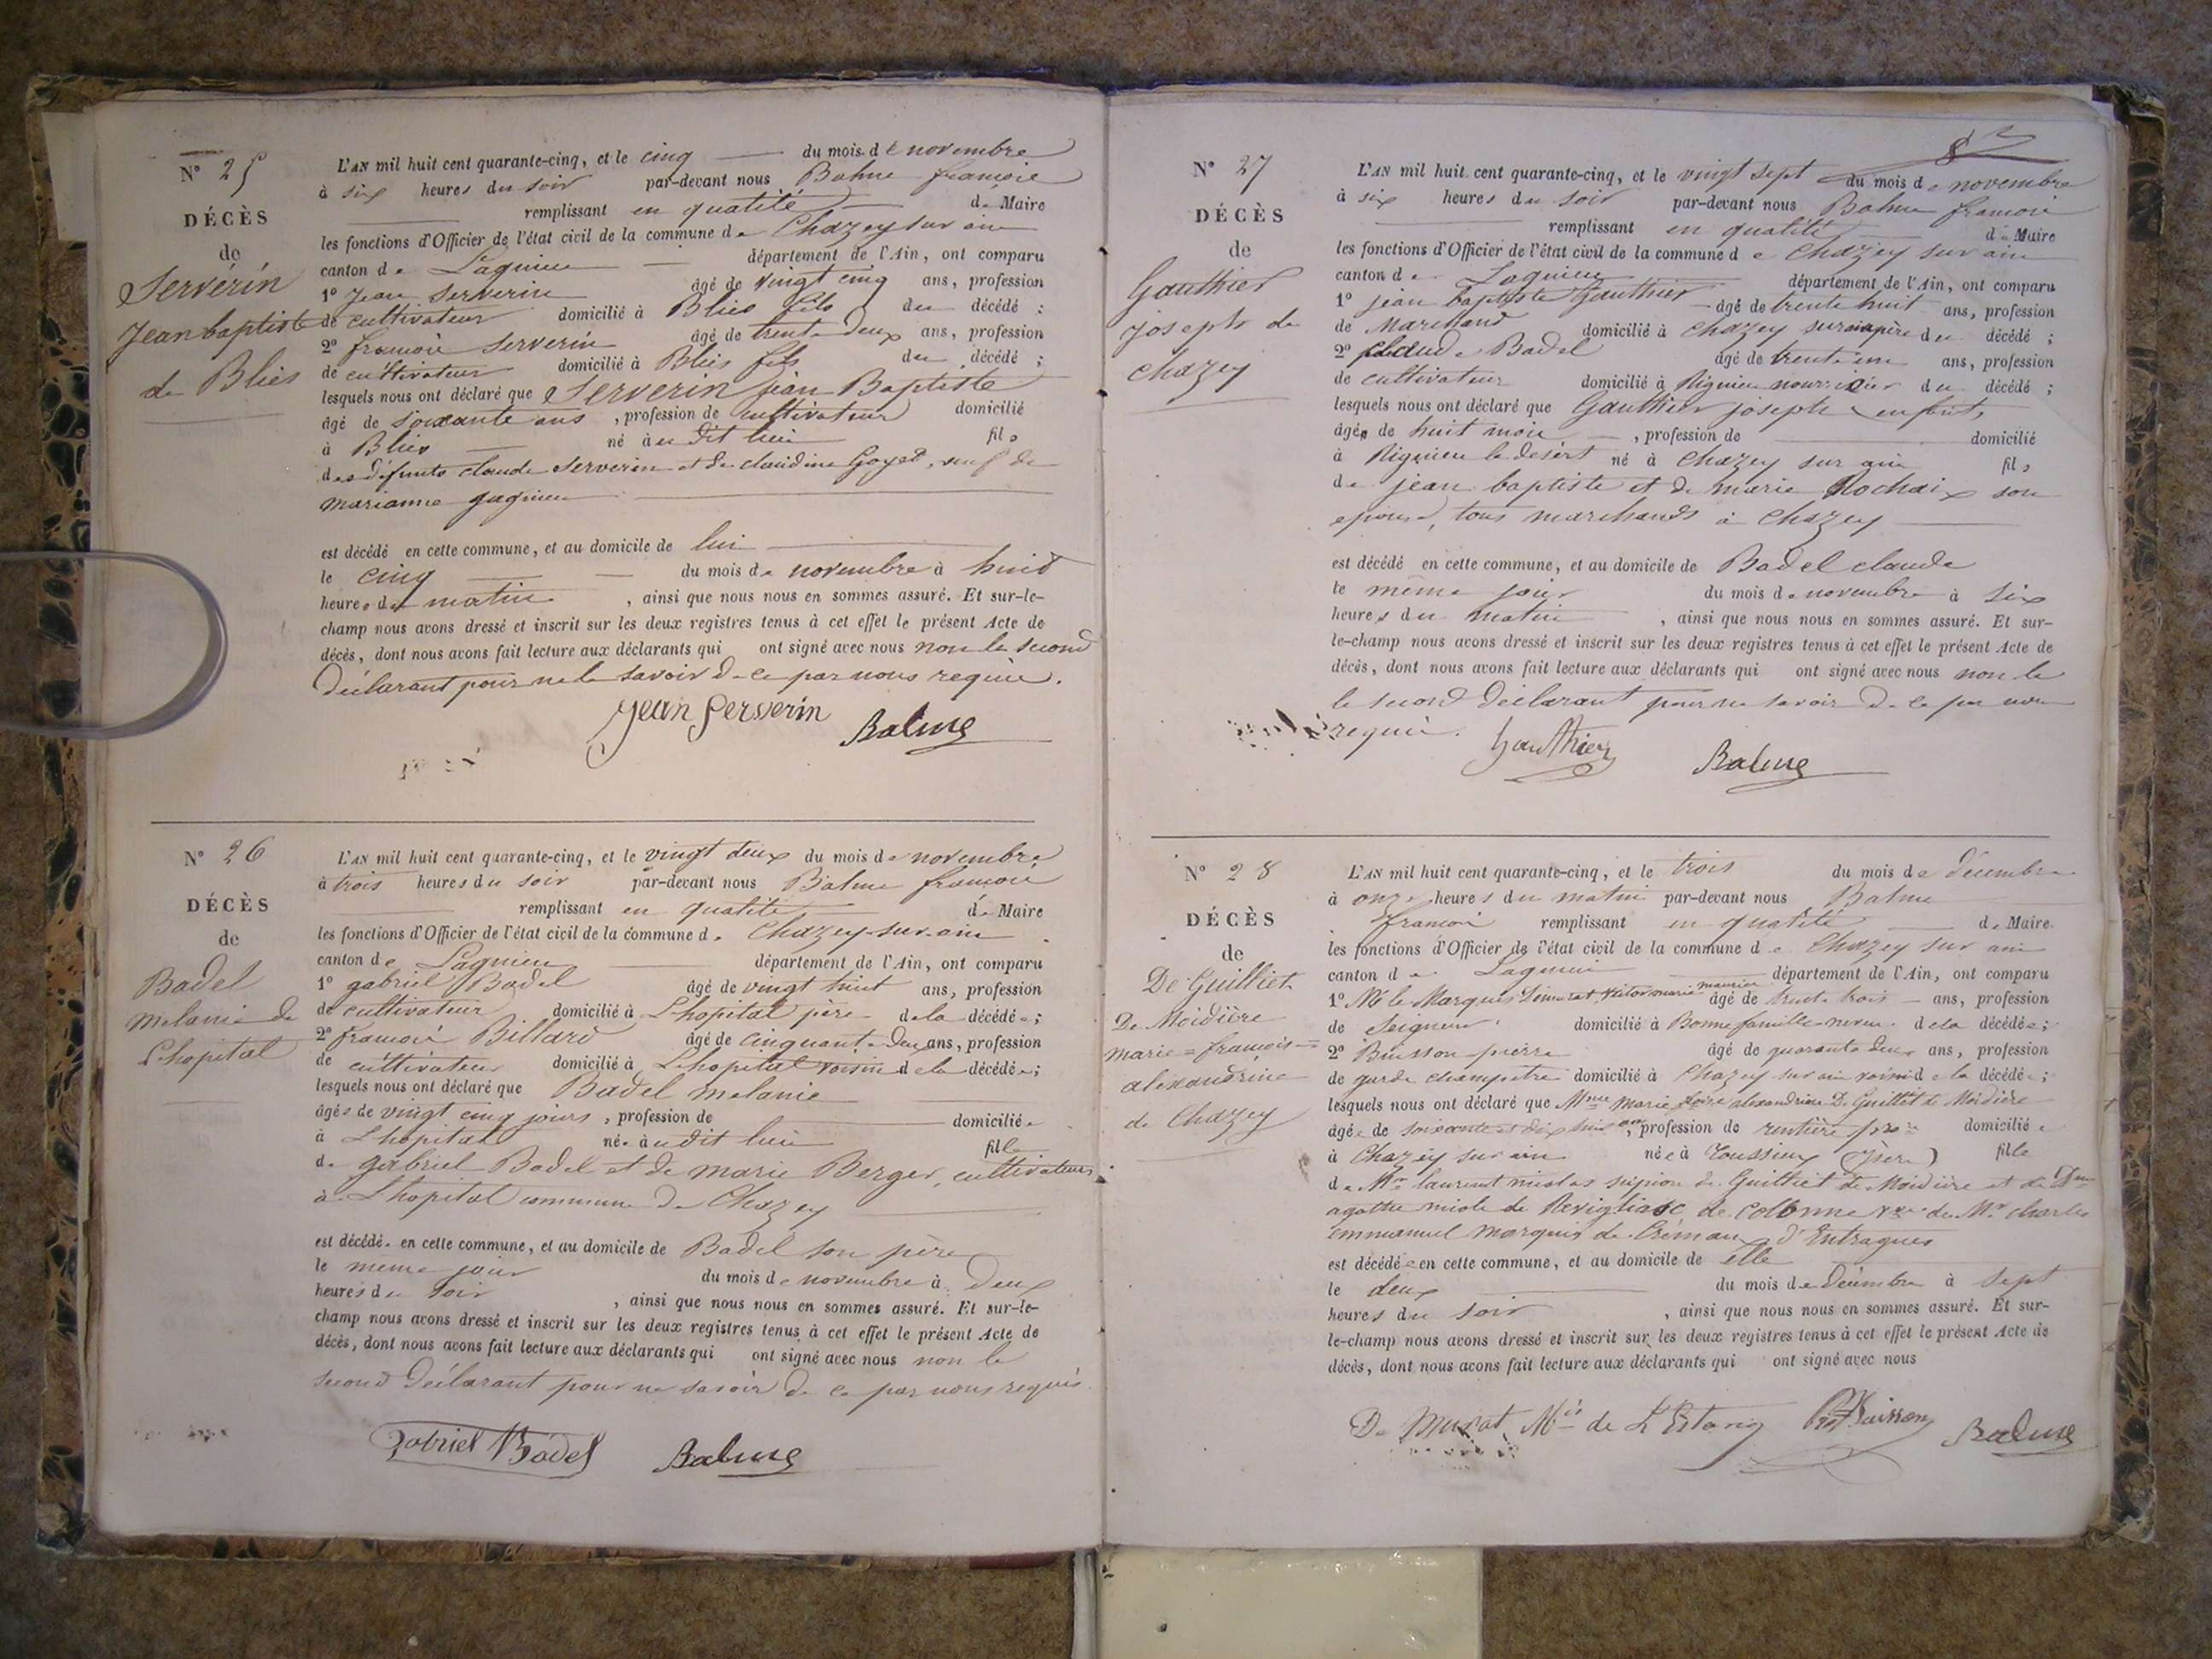 N° 25
DÉCÈS
de
Servérin
Jean baptiste
de Blies
L'AN mil huit cent quarante-cinq, et le cinq du mois de novembre
à six heures du soir par-devant nous Balme françois
remplissant en qualité de Maire
les fonctions d'Officier de l'état civil de la commune de Chazey sur ain
canton de Lagnieu département de l'Ain, ont comparu
1° Jean Serverin âgé de vingt cinq ans, profession
de cultivateur domicilié à Blies fils du décédé ;
2° françois Serverin âgé de trente deux ans, profession
de cultivateur domicilié à Blies fils du décédé ;
lesquels nous ont déclaré que Serverin jean Baptiste
âgé de soixante ans , profession de cultivateur domicilié
à Blies né au dit lieu fils
des défunts claude Serverin et de claudine Goyet, veuf de
marianne gagnieu
est décédé en cette commune, et au domicile de lui
le cinq du mois de novembre à huit
heures du matin , ainsi que nous nous en sommes assuré. Et sur-le-
champ nous avons dressé et inscrit sur les deux registres tenus à cet effet le présent Acte de
décès, dont nous avons fait lecture aux déclarants qui ont signé avec nous non le second
déclarant pour ne le savoir de ce par nous requis.
Jean Serverin Balme
N° 26
DÉCÈS
de
Badel
melanie de
L'hopital
L'AN mil huit cent quarante-cinq, et le vingt deux du mois de novembre
à trois heures du soir par-devant nous Balme françois
remplissant en qualité de Maire
les fonctions d'Officier de l'état civil de la commune de Chazey-sur-ain
canton de Lagnieu département de l'Ain, ont comparu
1° gabriel Badel âgé de vingt huit ans, profession
de cultivateur domicilié à L'hopital père de la décédée ;
2° françois Billard âgé de cinquante deux ans, profession
de cultivateur domicilié à L'hopital voisin de la décédée ;
lesquels nous ont déclaré que Badel melanie
âgée de vingt cinq jours , profession de domiciliée
à L'hopital née audit lieu fille
de gabriel Badel et de marie Berger, cultivateurs
à L'hopital commune de Chazey
est décédée en cette commune, et au domicile de Badel son père
le meme jour du mois de novembre à deux
heures du soir , ainsi que nous nous en sommes assuré. Et sur-le-
champ nous avons dressé et inscrit sur les deux registres tenus à cet effet le présent Acte de
décès, dont nous avons fait lecture aux déclarants qui ont signé avec nous non le
second déclarant pour ne savoir de ce par nous requis
Gabriel Badel Balme
8
N° 27
DÉCÈS
de
Gauthier
joseph de
chazey
L'AN mil huit cent quarante-cinq, et le vingt sept du mois de novembre
à six heures du soir par-devant nous Balme françois
remplissant en qualité de Maire
les fonctions d'Officier de l'état civil de la commune de Chazey sur ain
canton de Lagnieu département de l'Ain, ont comparu
1° jean baptiste Gauthier âgé de trente huit ans, profession
de Marchand domicilié à chazey sur ain père du décédé ;
2° claude Badel âgé de trente un ans, profession
de cultivateur domicilié à Rignieu nourricier du décédé ;
lesquels nous ont déclaré que Gauthier joseph enfant,
âgée de huit mois , profession de domicilié
à Rignieu le desert né à Chazey sur ain fils
de jean baptiste et de marie Rochaix son
epouse, tous marchands à Chazey
est décédé en cette commune, et au domicile de Badel claude
le même jour du mois de novembre à six
heures du matin , ainsi que nous nous en sommes assuré. Et sur-
le-champ nous avons dressé et inscrit sur les deux registres tenus à cet effet le présent Acte de
décès, dont nous avons fait lecture aux déclarants qui ont signé avec nous non le
le second déclarant pour ne savoir de ce par nous
requis.
Gauthier Balme
N° 28
DÉCÈS
de
De Guilliet
De Moidière
marie=françoise=
alexandrine
de Chazey
L'AN mil huit cent quarante-cinq, et le trois du mois de décembre
à onze heures du matin par-devant nous Balme
françois remplissant en qualité de Maire
les fonctions d'Officier de l'état civil de la commune de Chazey sur ain
canton de Lagnieu département de l'Ain, ont comparu
1° Mr le Marquis Demurat Victor marie maurice âgé de trente trois ans, profession
de Seigneur domicilié à Bonne famille neveu de la décédée ;
2° Buisson pierre âgé de quarante deux ans, profession
de garde champetre domicilié à Chazey sur ain voisin de la décédée ;
lesquels nous ont déclaré que Mme Marie alexandrine De Guillet de Moidière
âgée de soixante et dix huit ans, profession de rentière domiciliée
à Chazey sur ain née à Toussieu (Isère) fille
de Mr laurent nicolas scipion de Guilliet de Moidière et de Dme
agathe nicole de Revigliasc de Colonne vve de Mr charles
emmanuel marquis de Crémaux d'Entragues
est décédée en cette commune, et au domicile de elle
le deux du mois de décembre à sept
heures du soir , ainsi que nous nous en sommes assuré. Et sur-
le-champ nous avons dressé et inscrit sur les deux registres tenus à cet effet le présent Acte de
décès, dont nous avons fait lecture aux déclarants qui ont signé avec nous
De Murat Mis de L'Estang Buisson Balme